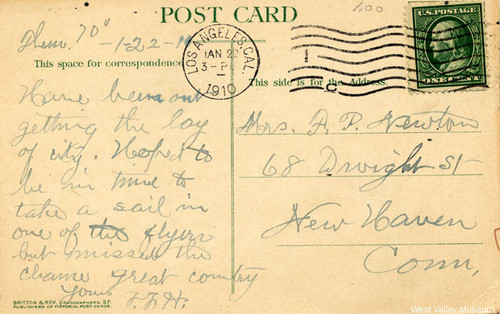 POST CARD
100
Ther. 70° -1-22-10
LOS ANGELES, CAL.
JAN 22
3-P
1910
U.S. POSTAGE
ONE CENT
This space for correspondence
This side is for the Address.
Have been out
getting the lay
of city. Hoped to
be in time to
take a sail in
one of the flyers
but missed the
chance great country
Yours F.F.H.
Mrs. A. P. Newton
68 Dwight St
New Haven
Conn,
BRITTON & REY, LITHOGRAPHERS, S.F.
PUBLISHERS OF PICTORIAL POST CARDS.
West Valley Museum